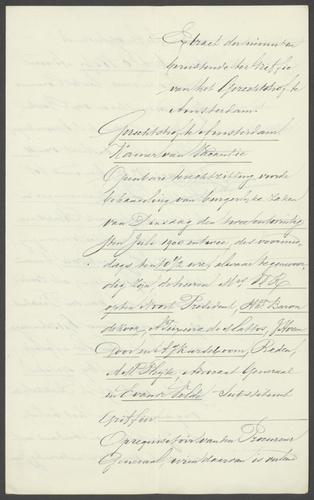 Extract der minuten
berustende ter Griffie
van het Gerechtshof te
Amsterdam.
Gerechtshof te Amsterdam
Kamer van Vacantie
Openbare terechtzitting voor de
behandeling van burgerlijke zaken
van Dinsdag den twee en twintig
sten Juli 190 en twee, des voormid
dags ten 10½ ure, alwaar tegenwoor
dig zijn de heeren Mrs
President, Baron
de Mattos,
Door Karseboom, Raden,
Advocaat Generaal
en E van de Velde Substituut
Griffier
Op requisitoir van den Procureur
Generaal, is verleend